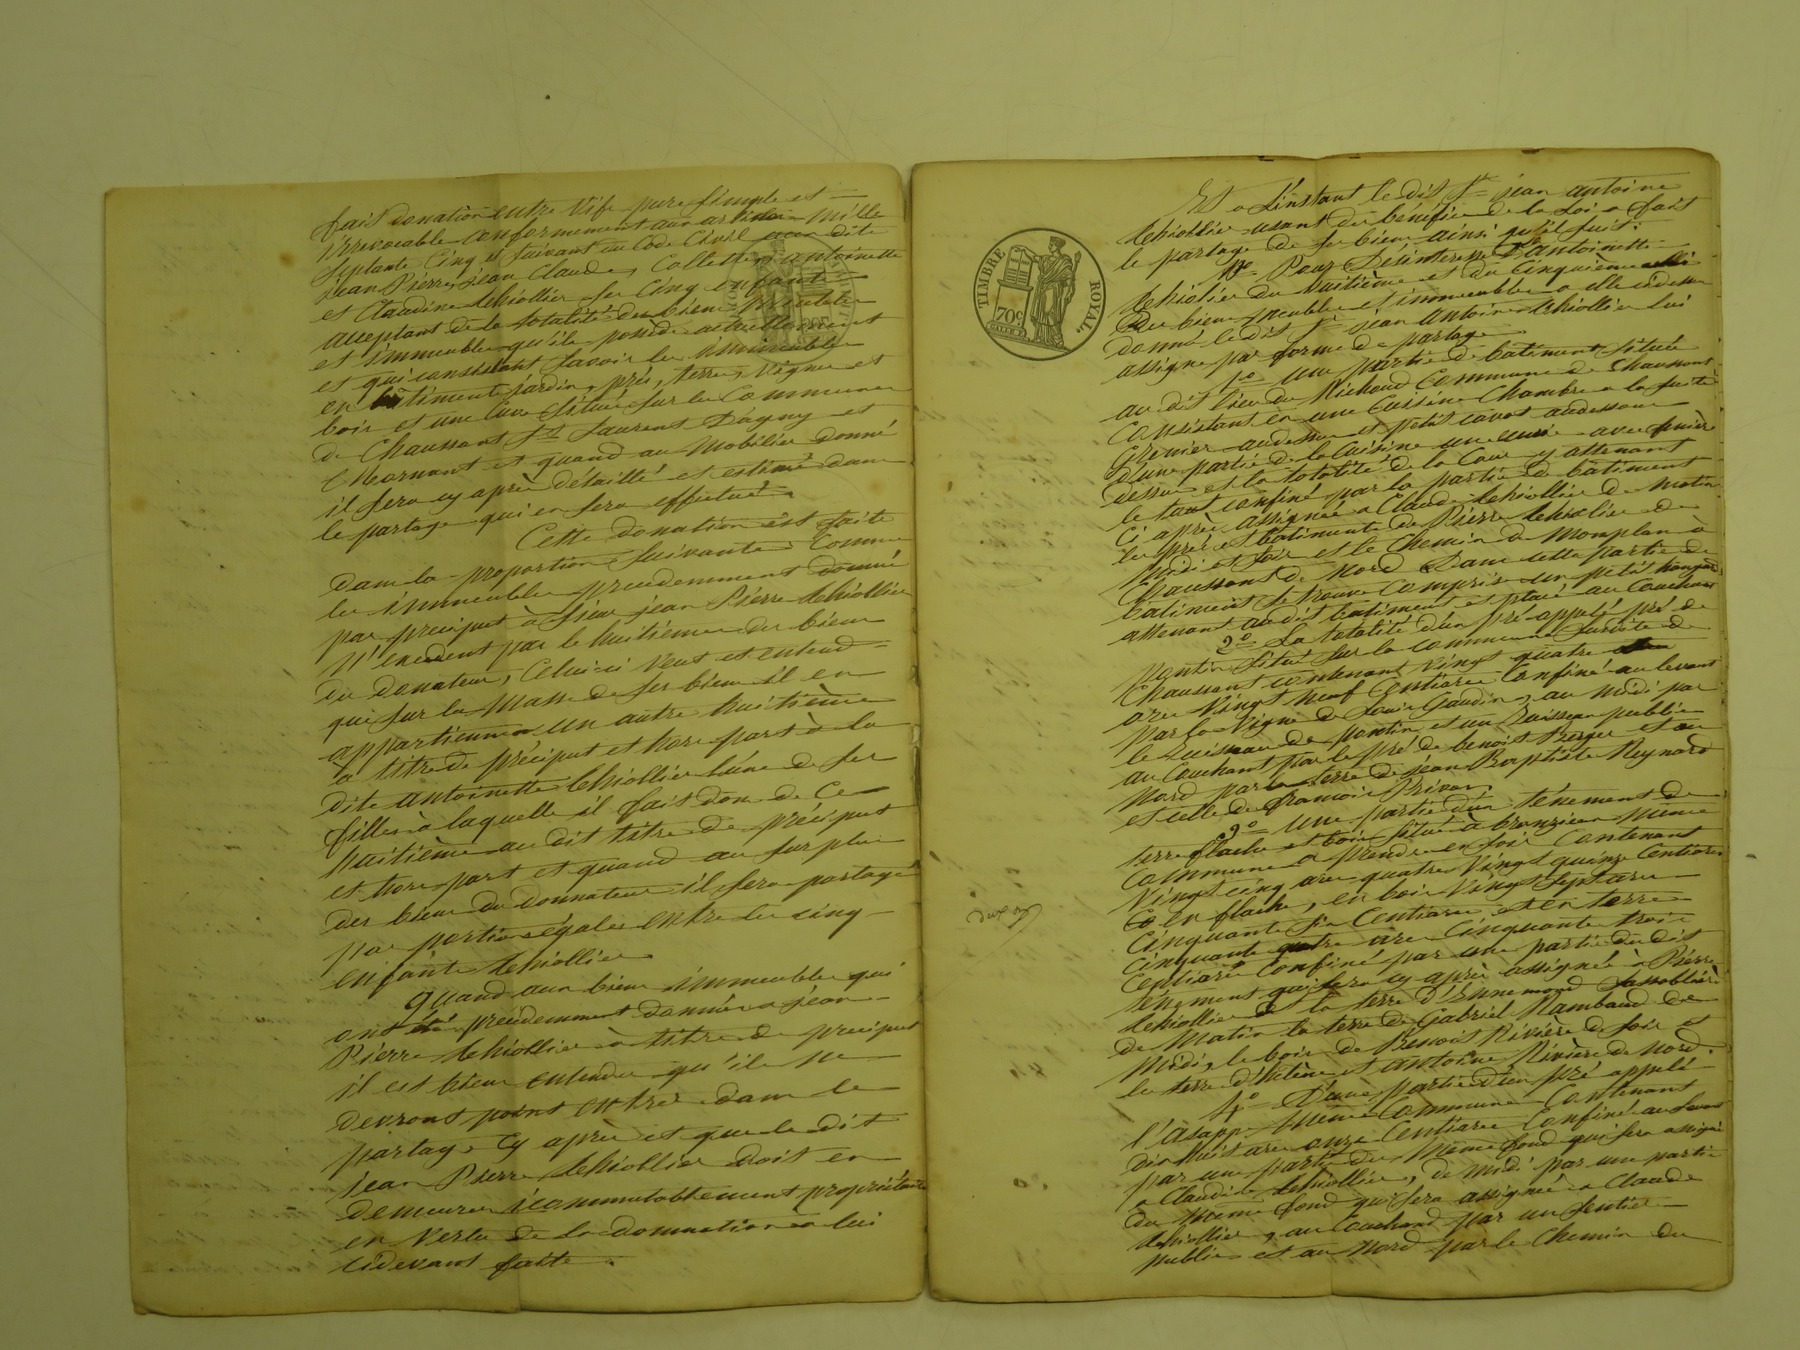 fait donation entre Vifs pure simple et
irrévocable conformement aux articles Mille
septante Cinq et suivant du Code Civil aux dits
jean Pierre, jean Claude, Collette, antoinette
et Claudine Schiollier ses Cinq enfants
acceptant de la totalité des biens Meubles
et immeubles qu'ils possède actuellement
et qui consistent savoir les immeubles
en bâtiments jardin, prés, terres, vignes et
bois et une Cave située sur les Communes
de Chaussant St Laurent Dagny et
Mornant et quand au Mobilier donné
il sera cy après détaillé et estimé dans
le partage qui en sera effectué.
Cette donation est faite
dans la proportion suivante Comme
les immeubles precedemment donné
par preciput à sieur jean Pierre Schiollier
N'excedent pas le huitieme des biens
du donateur, Celui-ci Veut et entend
que sur la Masse de ses biens il en
appartienne un autre huitième
a titre de préciput et hors part à la
dite antoinette Schiollier l'une de ses
filles à laquelle il fait don de Ce
huitième au dit titre de préciput
et hors part et quand au surplus
des biens du donnateur il sera partagé
par portions égales entre les cinq
enfants Schiollier
quand aux biens immeubles qui
ont été precedemment donnés a jean
Pierre Schiollier à titre de preciput
il est bien entendu qu'ils ne
devront point entrer dans le
partage Cy après et que le dit
jean Pierre Schiollier doit en
demeurer incommutablement propriétaire
en Vertu de la donnation a lui
cidevant faite.
Et a L'instant le dit Sr jean antoine
Schiollier usant du bénéfice de la Loi a fait
le partage de ses biens ainsi qu'il suit:
Pour D'antoinette
Schiollier du huitième et du Cinquième
des biens meubles et immeubles a elle cidessus
donné le dit Sr jean Antoine Schiollier lui
assigne par forme de partage
1o une partie de batiment située
au dit lieu du Richoud Commune de Chaussant
Consistant en une Cuisine Chambre a la suite
Grenier audessus et petit caveau audessous
d'une partie de la Cuisine avec
dessus et la totalité de la Cour y attenant
le tout confiné par la partie de batiment
Ci après assignée a Claude Schiollier de Matin
les prés et batiments de Pierre Schiollier de
Midi et soir et le Chemin de Monplan à
Chaussant de Nord Dans cette partie de
batiment se trouve Compris un petit hangar
attenant au dit batiment et placé au Couchant
2o La totalité d'un pré appelé pré de
pontin Situé sur la commune susdite de
Chaussant contenant vingt quatre
ares Vingt neuf Centiares Confiné au levant
Par la Vigne de Louis Gaudin, au Midi par
le Ruisseau de pontin et un Ruisseau public
au Couchant par le pré de benoit Berger et au
Nord par la terre de jean Baptiste Reynard
et celle de francois Privas.
3o une partie d'un tènement de
terre flache et bois situé à bronzieux Même
Commune a prendre en soir Contenant
Vingt cinq ares quatre Vingt quinze Centiares
en flache, en bois Vingt Sept ares
Cinquante six Centiares et en terre
Cinquante quatre ares Cinquante trois
Centiares Confiné par une partie du dit
tènement qui sera cy après assignée à Pierre
Schiollier et la terre d'Ennemond
de Matin la terre de Gabriel Rambaud de
Midi, le bois de Benoit Rivière de soir et
les terre d'hélène et antoine Rivière de Nord.
4o D'une partie d'un pré appelé
l'Asappe Même Commune Contenant
dix huit ares onze Centiares Confiné au levant
par une partie du Même fond qui sera assigné
a Claudine Schiollier, de midi par une partie
du Même fond qui sera assignée a Claude
Schiollier, au Couchant par un sentier
public et au Nord par le Chemin du
TIMBRE ROYAL.
70c